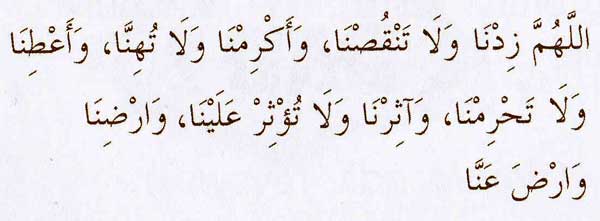 اللَّهُمَّ زِدْنَا وَلَا تَنْقُصْنَا، وَأَكْرِمْنَا وَلَا تُهِنَّا، وَأَعْطِنَا
وَلَا تَحْرِمْنَا، وَآثِرْنَا وَلَا تُؤْثِرْ عَلَيْنَا، وَارْضِنَا
وَارْضَ عَنَّا